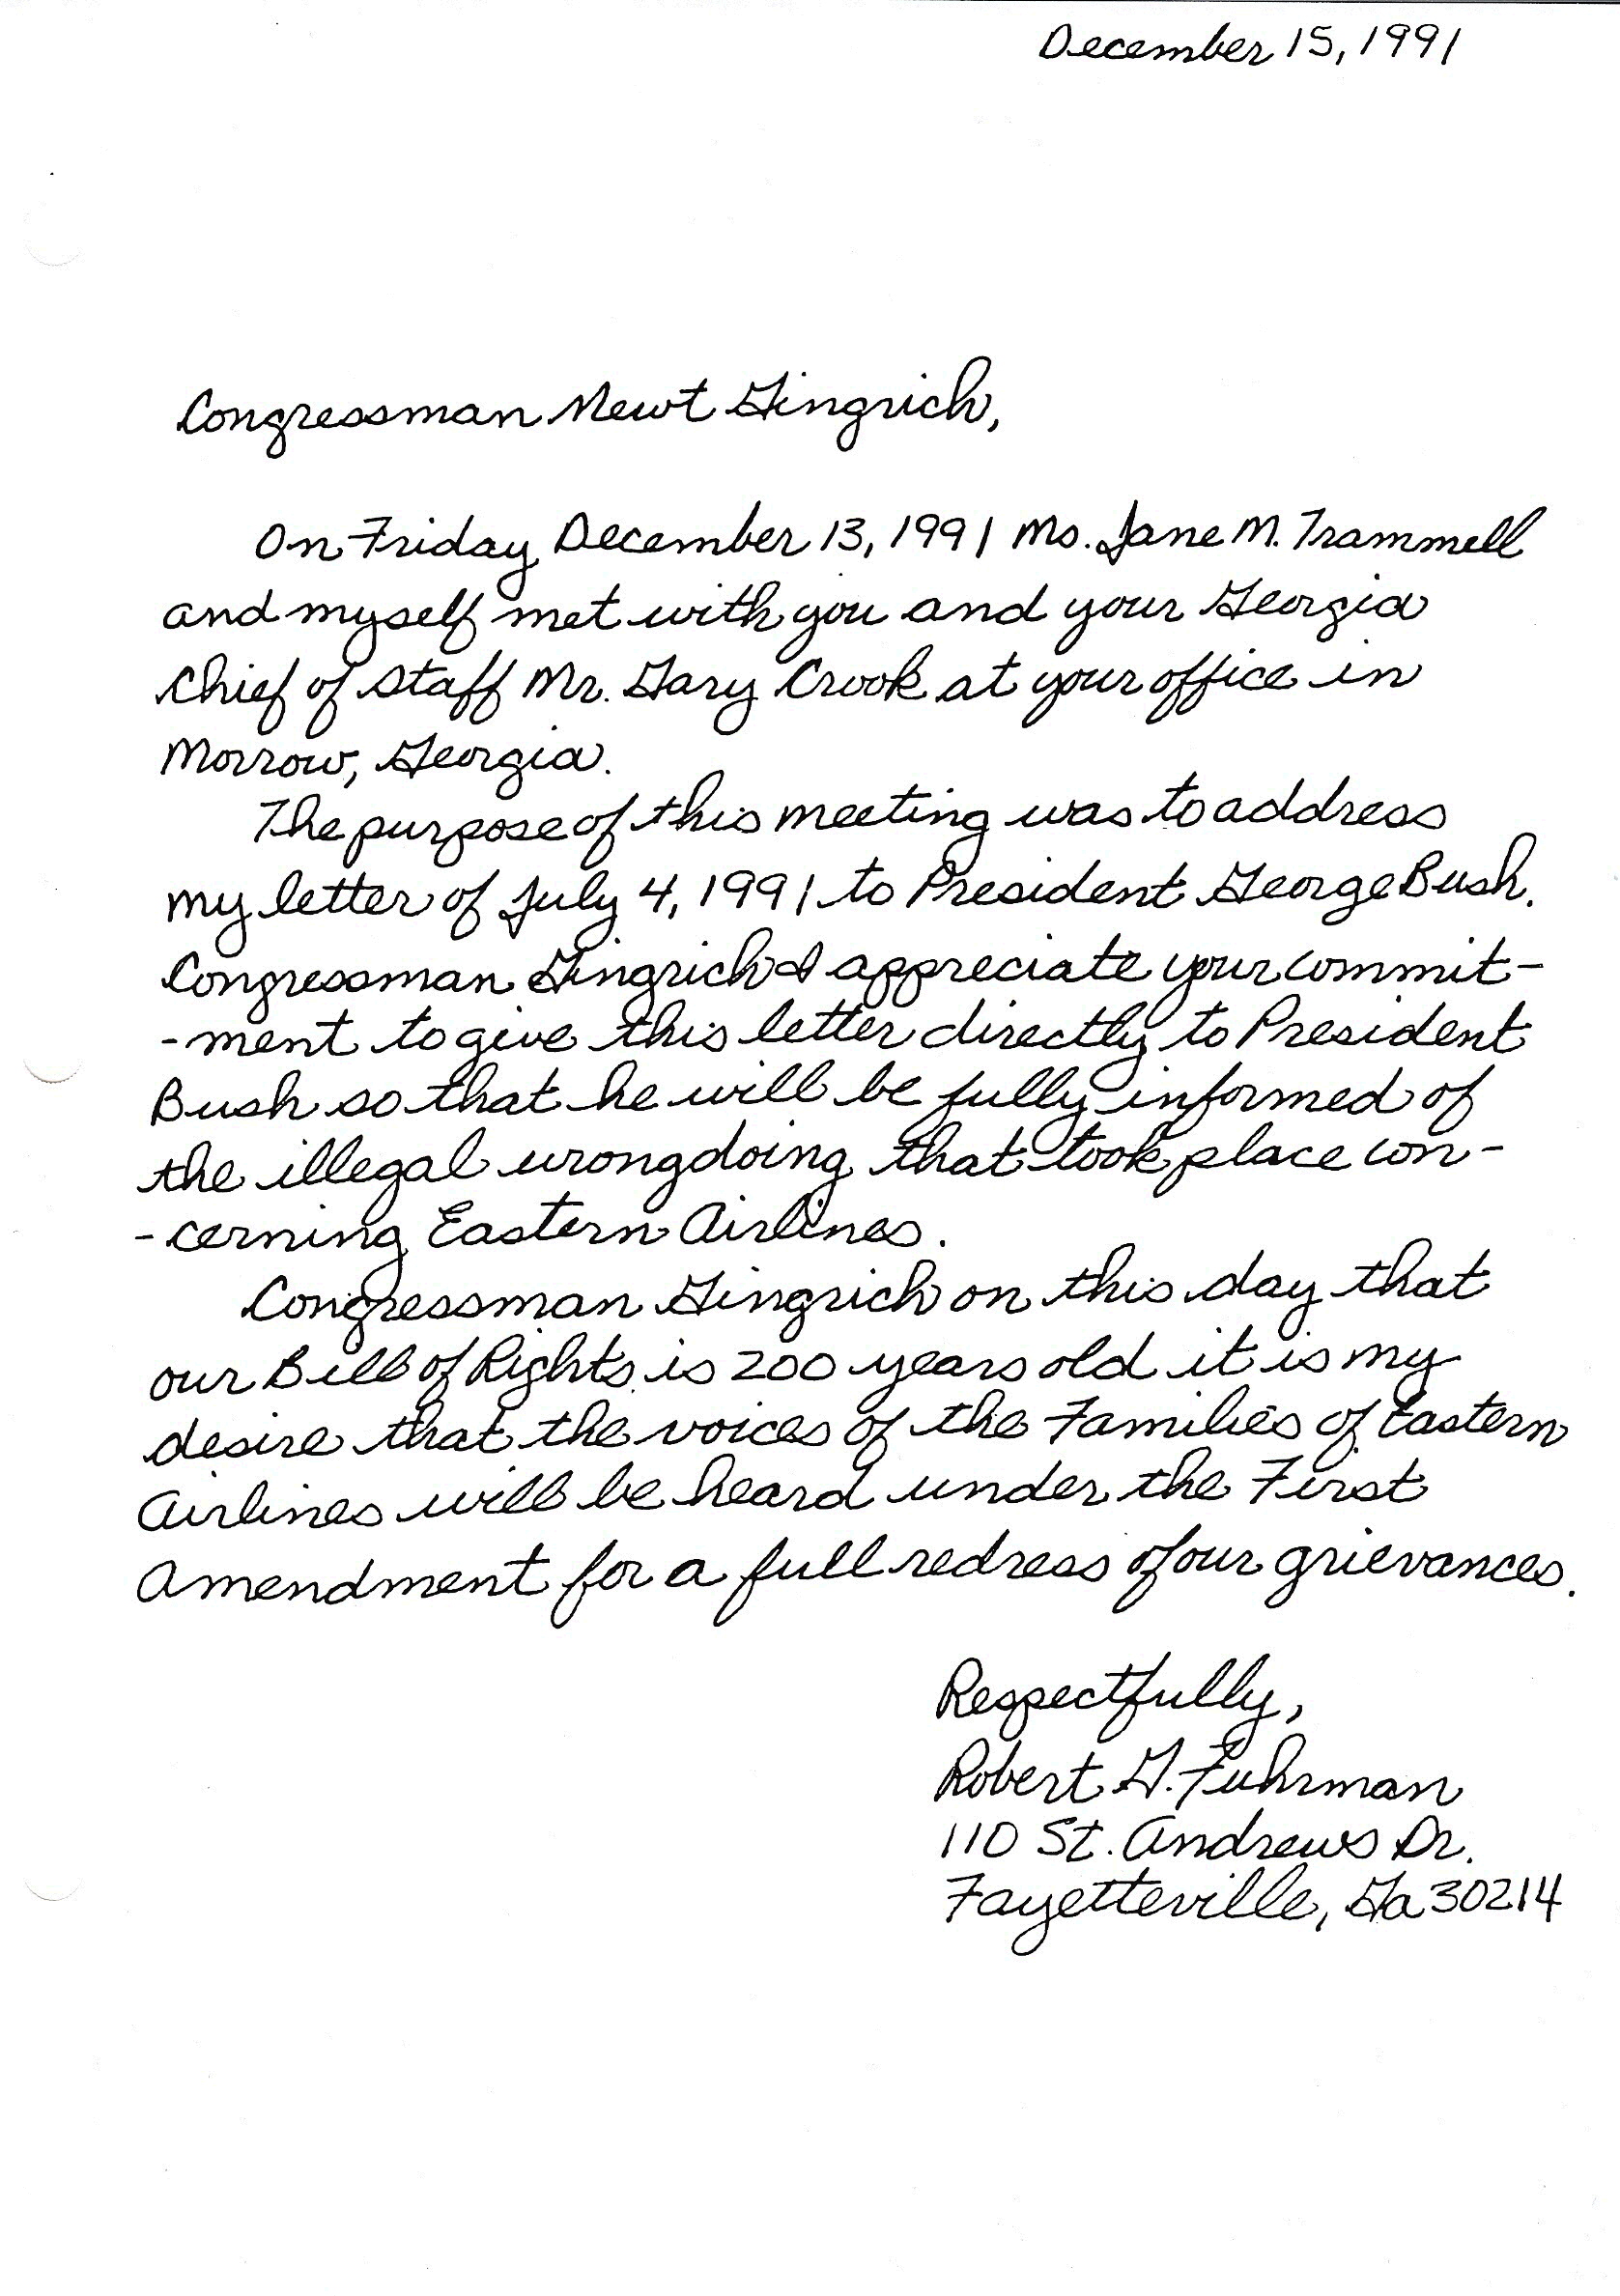 December 15, 1991
Congressman Newt Gingrich,
On Friday December 13, 1991 Ms. Jane M. Trammell
and myself met with you and your Georgia
Chief of Staff Mr. Gary Crook at your office in
Morrow, Georgia.
The purpose of this meeting was to address
my letter of July 4, 1991 to President George Bush.
Congressman Gingrich I appreciate your commit-
-ment to give this letter directly to President
Bush so that he will be fully informed of
the illegal wrongdoing that took place con-
-cerning Eastern Airlines.
Congressman Gingrich on this day that
our Bill of Rights is 200 years old it is my
desire that the voices of the Families of Eastern
Airlines will be heard under the First
Amendment for a full redress of our grievances.
Respectfully,
Robert G. Fuhrman
110 St. Andrews Dr.
Fayetteville, Ga 30214